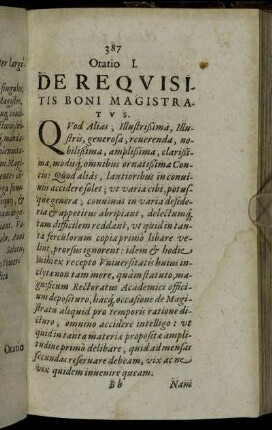 387
Oratio I.
DE REQVISI-
TIS BONI MAGISTRA-
TVS.
QVod Aliàs, Illustrißima, Illu-
stris, generosa, reuerenda, no-
bilißima, amplißima, clarißi-
ma, modisq; omnibus ornatißima Con-
tio: Quod aliàs, lautioribus in conuiui-
uijs accidere solet; ut varia cibi, potus-
que genera; conniuas in varia deside-
ria & appetitus abripiant, delectumq́;
tam difficilem reddant, vt quid in tan-
ta ferculorum copia primò libare ve-
lint, prorsus ignorent: idem & hodie
mihi ex recepto Vniuersitatis huius in-
clytæ non tam more, quàm statuto, ma-
gnificum Rectoratus Academici offici-
um deposituro, hacq́; occasione de Magi-
stratu aliquid pro temporis ratione di-
cturo, omnino accidere intelligo: vt
quid in tanta materiæ proposita ampli-
tudine primò delibare, quid ad mensas
secundas reseruare debeam, vix ac ne
vix quidem inuenire queam.
Bb
Nam
Oratio